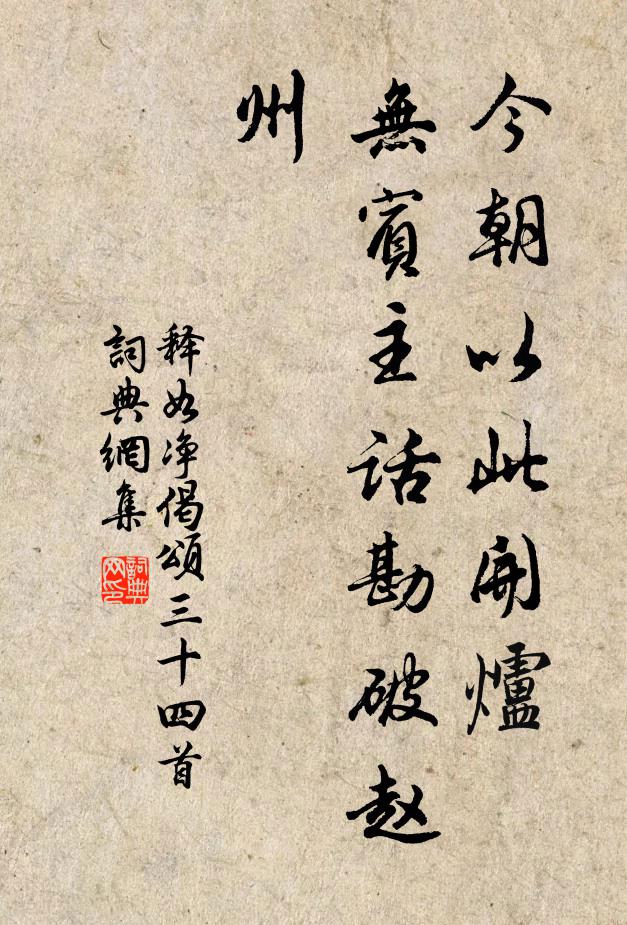 今朝以此開爐
無賓主話勘破赵
州
释如净偈頌三十四首
詞典網集
詞典
网印